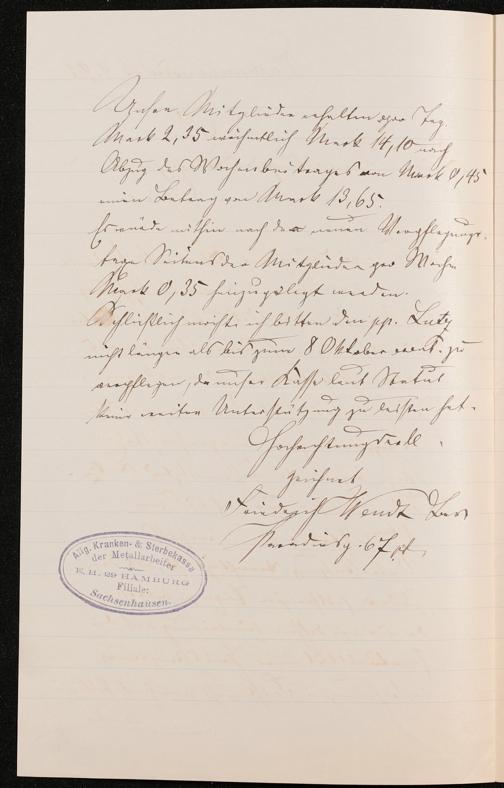 Unsere Mitglieder erhalten pro Tag
Mark 2,35 wöchentlich Mark 14,10 nach
Abzug des Wochenbeitrages von Mark 0,45
einen Betrag von Mark 13,65.
Es würde mithin nach der neuen Verpflegungs-
taxe Seitens der Mitglieder pro Woche
Mark 0,35 hinzugelegt werden.
Schließlich möchte ich bitten den pp. Lutz
nicht länger als bis zum 8 Oktober zu
verpflegen, da unser Kasse laut Statut
keine weitere Unterstützung zu leisten hat.
Hochachtungsvoll
zeichnet
Friedrich Wendt
Paradiesg. 67 pt
Allg. Kranken- & Sterbekasse
der Metallarbeiter
E. H. 29 HAMBURG
Filiale:
Sachsenhausen.